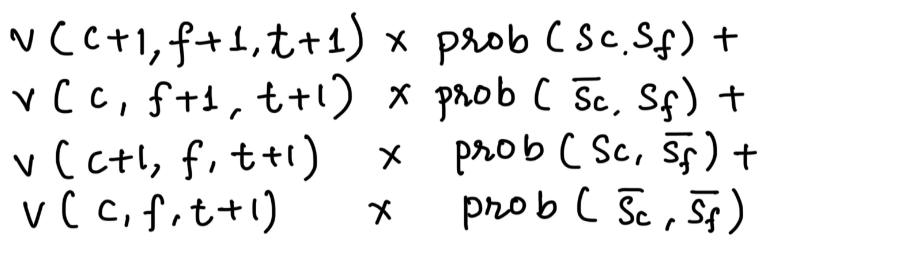 v(c+1, f+1, t+1) × prob(Sc, Sf) +
v(c, f+1, t+1) × prob(S̅c, Sf) +
v(c+1, f, t+1) × prob(Sc, S̅f) +
v(c, f, t+1) × prob(S̅c, S̅f)